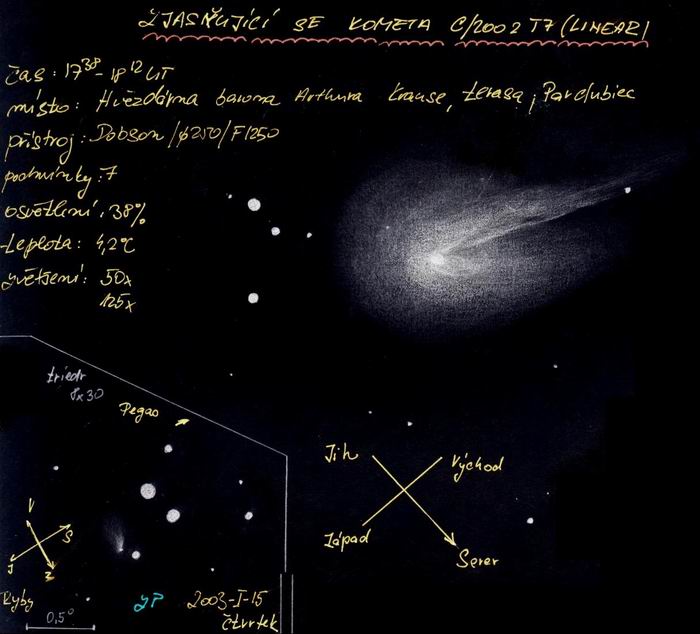 ZJASŇUJÍCÍ SE KOMETA C/2002 T7 (LINEAR)
čas: 17³⁸-18¹² UT
místo: Hvězdárna barona Arthura Krause, terasa, Pardubice
přístroj: Dobson/ϕ250/F1250
podmínky: 7
osvětlení: 38%
teplota: 4,2°C
zvětšení: 50x
125x
triedr
8x30
Pegas
Jih
Východ
Západ
Sever
V
S
J
Z
Ryby
0,5°
2003-I-15
čtvrtek